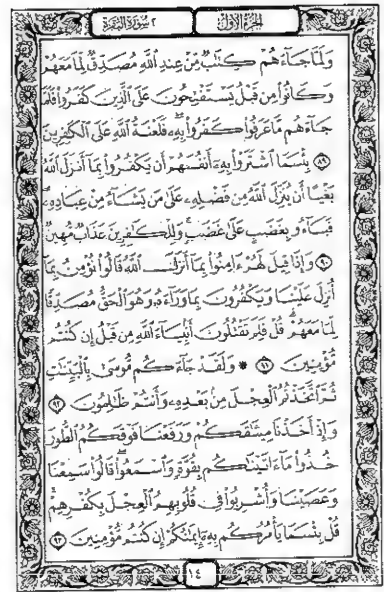 الجزء الأول
٢ سورة البقرة
وَلَمَّا جَاءَهُمْ كِتَٰبٌ مِّنْ عِندِ ٱللَّهِ مُصَدِّقٌ لِّمَا مَعَهُمْ
وَكَانُوا۟ مِن قَبْلُ يَسْتَفْتِحُونَ عَلَى ٱلَّذِينَ كَفَرُوا۟ فَلَمَّا
جَاءَهُم مَّا عَرَفُوا۟ كَفَرُوا۟ بِهِۦ فَلَعْنَةُ ٱللَّهِ عَلَى ٱلْكَٰفِرِينَ
٨٩ بِئْسَمَا ٱشْتَرَوْا۟ بِهِۦٓ أَنفُسَهُمْ أَن يَكْفُرُوا۟ بِمَآ أَنزَلَ ٱللَّهُ
بَغْيًا أَن يُنَزِّلَ ٱللَّهُ مِن فَضْلِهِۦ عَلَىٰ مَن يَشَآءُ مِنْ عِبَادِهِۦ
فَبَآءُو بِغَضَبٍ عَلَىٰ غَضَبٍ وَلِلْكَٰفِرِينَ عَذَابٌ مُّهِينٌ
٩٠ وَإِذَا قِيلَ لَهُمْ ءَامِنُوا۟ بِمَآ أَنزَلَ ٱللَّهُ قَالُوا۟ نُؤْمِنُ بِمَآ
أُنزِلَ عَلَيْنَا وَيَكْفُرُونَ بِمَا وَرَآءَهُۥ وَهُوَ ٱلْحَقُّ مُصَدِّقًا
لِّمَا مَعَهُمْ قُلْ فَلِمَ تَقْتُلُونَ أَنۢبِيَآءَ ٱللَّهِ مِن قَبْلُ إِن كُنتُم
مُّؤْمِنِينَ ٩١ * وَلَقَدْ جَآءَكُم مُّوسَىٰ بِٱلْبَيِّنَٰتِ
ثُمَّ ٱتَّخَذْتُمُ ٱلْعِجْلَ مِنۢ بَعْدِهِۦ وَأَنتُمْ ظَٰلِمُونَ ٩٢
وَإِذْ أَخَذْنَا مِيثَٰقَكُمْ وَرَفَعْنَا فَوْقَكُمُ ٱلطُّورَ
خُذُوا۟ مَآ ءَاتَيْنَٰكُم بِقُوَّةٍ وَٱسْمَعُوا۟ قَالُوا۟ سَمِعْنَا
وَعَصَيْنَا وَأُشْرِبُوا۟ فِى قُلُوبِهِمُ ٱلْعِجْلَ بِكُفْرِهِمْ
قُلْ بِئْسَمَا يَأْمُرُكُم بِهِۦٓ إِيمَٰنُكُمْ إِن كُنتُم مُّؤْمِنِينَ ٩٣
١٤